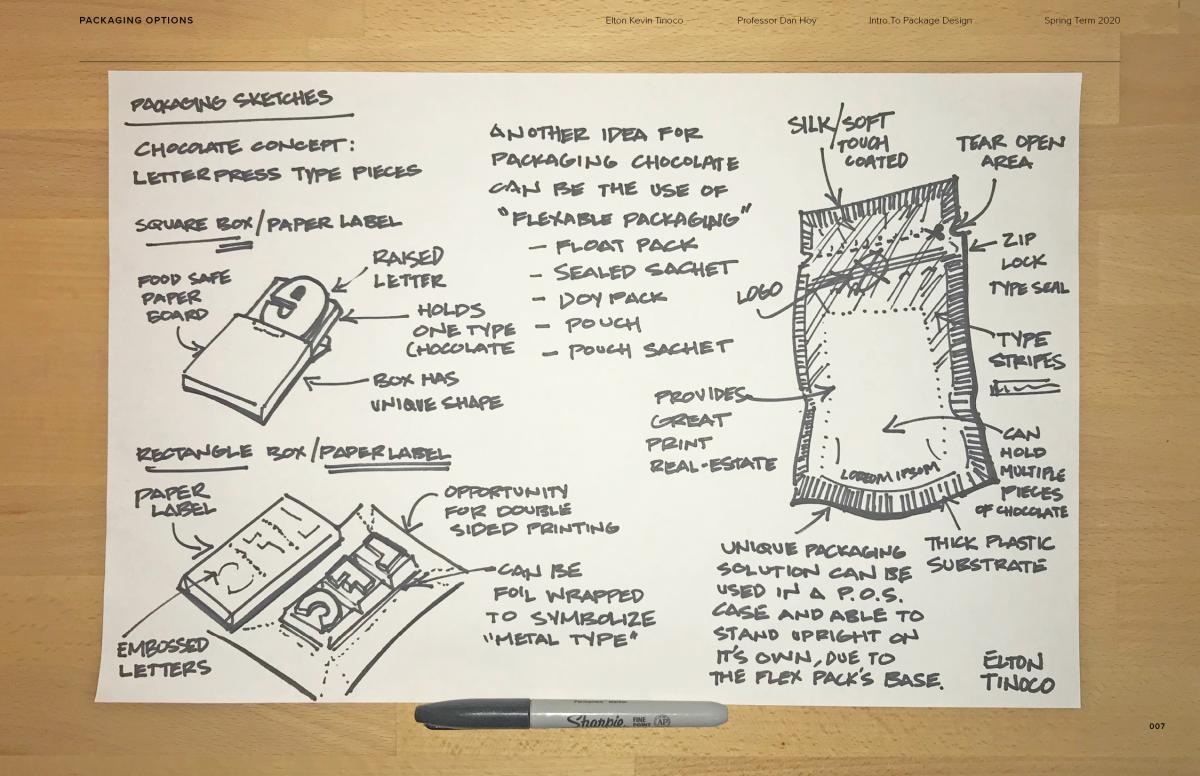 PACKAGING OPTIONS
Elton Kevin Tinoco
Professor Dan Hoy
Intro To Package Design
Spring Term 2020
PACKAGING SKETCHES
CHOCOLATE CONCEPT:
LETTERPRESS TYPE PIECES
SQUARE BOX/PAPER LABEL
FOOD SAFE
PAPER
BOARD
RAISED
LETTER
HOLDS
ONE TYPE
CHOCOLATE
BOX HAS
UNIQUE SHAPE
RECTANGLE BOX/PAPER LABEL
PAPER
LABEL
OPPORTUNITY
FOR DOUBLE
SIDED PRINTING
CAN BE
FOIL WRAPPED
TO SYMBOLIZE
"METAL TYPE"
EMBOSSED
LETTERS
ANOTHER IDEA FOR
PACKAGING CHOCOLATE
CAN BE THE USE OF
"FLEXABLE PACKAGING"
- FLOAT PACK
- SEALED SACHET
- DOY PACK
- POUCH
- POUCH SACHET
SILK/SOFT
TOUCH
COATED
TEAR OPEN
AREA
ZIP
LOCK
TYPE SEAL
LOGO
TYPE
STRIPES
PROVIDES
GREAT
PRINT
REAL-ESTATE
CAN
HOLD
MULTIPLE
PIECES
OF CHOCOLATE
LOREM IPSOM
THICK PLASTIC
SUBSTRATE
UNIQUE PACKAGING
SOLUTION CAN BE
USED IN A P.O.S.
CASE AND ABLE TO
STAND UPRIGHT ON
IT'S OWN, DUE TO
THE FLEX PACK'S BASE.
ELTON
TINOCO
Sharpie
FINE
POINT
AP
007